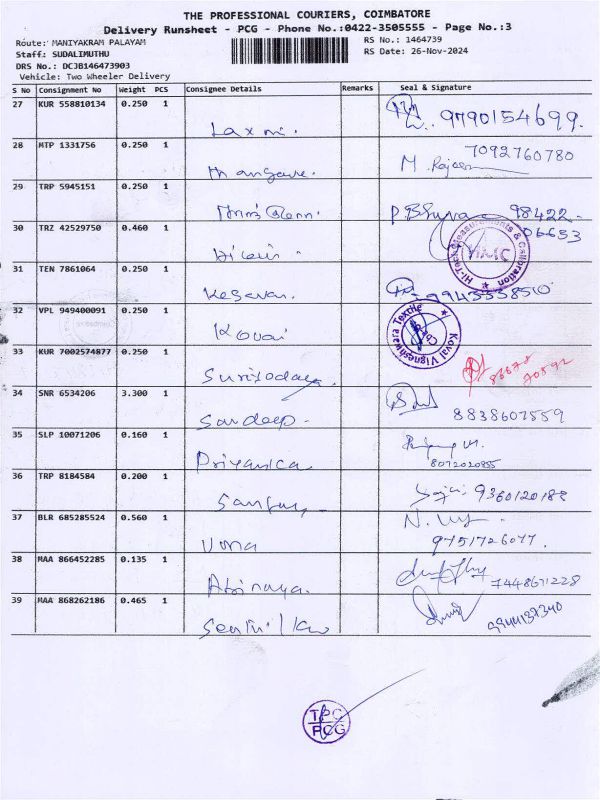 THE PROFESSIONAL COURIERS, COIMBATORE
Delivery Runsheet - PCG - Phone No.:0422-3505555 - Page No.:3
Route: MANIYAKRAM PALAYAM
RS No.: 1464739
Staff: SUDALIMUTHU
RS Date: 26-Nov-2024
DRS No.: DCJB146473903
Vehicle: Two Wheeler Delivery
S No Consignment No Weight PCS Consignee Details Remarks Seal & Signature
27 KUR 558810134 0.250 1
Laxmi. 9790154699.
28 MTP 1331756 0.250 1
7092760780
M. Rajeen
29 TRP 5945151 0.250 1
98422-
06653
30 TRZ 42529750 0.460 1
Hi-Tech Measurements & Calibration
31 TEN 7861064 0.250 1
Kesavan. 9943558510
32 VPL 949400091 0.250 1
Kovai
Kovai Vigneshwara Textile
33 KUR 7002574877 0.250 1
86678
70592
34 SNR 6534206 3.300 1
Sandeep. 8838607559
35 SLP 10071206 0.160 1
Priyanka
8072020855
36 TRP 8184584 0.200 1
9360120188
37 BLR 685285524 0.560 1
Uma
9751726077.
38 MAA 866452285 0.135 1
Abinaya. 7448671228
39 MAA 868262186 0.465 1
9944137340
TPC
PCG